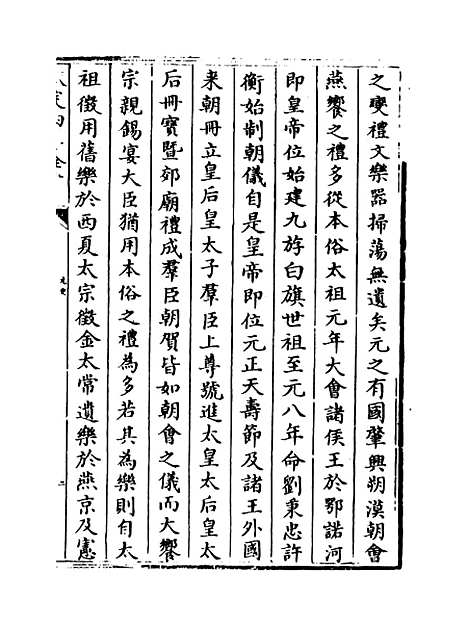 之變禮文樂器掃蕩無遺矣元之有國肇興朔漠朝會
燕饗之禮多從本俗太祖元年大會諸侯王於鄂諾河
即皇帝位始建九斿白旗世祖至元八年命劉秉忠許
衡始制朝儀自是皇帝即位元正天壽節及諸王外國
来朝冊立皇后皇太子羣臣上尊號進太皇太后皇太
后冊寶暨郊廟禮成羣臣朝賀皆如朝會之儀而大饗
宗親錫宴大臣猶用本俗之禮為多若其為樂則自太
祖徵用舊樂於西夏太宗徵金太常遺樂於燕京及憲
元史
二